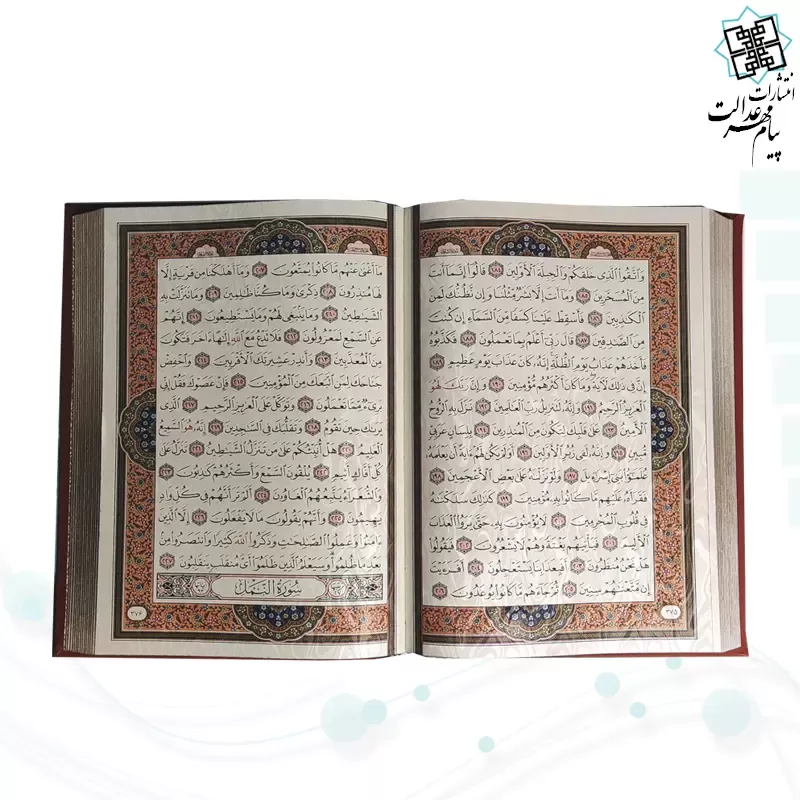 انتشارات
پیام مهر عدالت
وَٱتَّقُوا۟ ٱلَّذِى خَلَقَكُمْ وَٱلْجِبِلَّةَ ٱلْأَوَّلِينَ ١٨٤ قَالُوٓا۟ إِنَّمَآ أَنتَ
مِنَ ٱلْمُسَحَّرِينَ ١٨٥ وَمَآ أَنتَ إِلَّا بَشَرٌ مِّثْلُنَا وَإِن نَّظُنُّكَ لَمِنَ
ٱلْكَٰذِبِينَ ١٨٦ فَأَسْقِطْ عَلَيْنَا كِسَفًا مِّنَ ٱلسَّمَآءِ إِن كُنتَ
مِنَ ٱلصَّٰدِقِينَ ١٨٧ قَالَ رَبِّىٓ أَعْلَمُ بِمَا تَعْمَلُونَ ١٨٨ فَكَذَّبُوهُ
فَأَخَذَهُمْ عَذَابُ يَوْمِ ٱلظُّلَّةِ إِنَّهُۥ كَانَ عَذَابَ يَوْمٍ عَظِيمٍ ١٨٩
إِنَّ فِى ذَٰلِكَ لَءَايَةً وَمَا كَانَ أَكْثَرُهُم مُّؤْمِنِينَ ١٩٠ وَإِنَّ رَبَّكَ لَهُوَ
ٱلْعَزِيزُ ٱلرَّحِيمُ ١٩١ وَإِنَّهُۥ لَتَنزِيلُ رَبِّ ٱلْعَٰلَمِينَ ١٩٢ نَزَلَ بِهِ ٱلرُّوحُ
ٱلْأَمِينُ ١٩٣ عَلَىٰ قَلْبِكَ لِتَكُونَ مِنَ ٱلْمُنذِرِينَ ١٩٤ بِلِسَانٍ عَرَبِىٍّ
مُّبِينٍ ١٩٥ وَإِنَّهُۥ لَفِى زُبُرِ ٱلْأَوَّلِينَ ١٩٦ أَوَلَمْ يَكُن لَّهُمْ ءَايَةً أَن يَعْلَمَهُۥ
عُلَمَٰٓؤُا۟ بَنِىٓ إِسْرَٰٓءِيلَ ١٩٧ وَلَوْ نَزَّلْنَٰهُ عَلَىٰ بَعْضِ ٱلْأَعْجَمِينَ ١٩٨
فَقَرَأَهُۥ عَلَيْهِم مَّا كَانُوا۟ بِهِۦ مُؤْمِنِينَ ١٩٩ كَذَٰلِكَ سَلَكْنَٰهُ
فِى قُلُوبِ ٱلْمُجْرِمِينَ ٢٠٠ لَا يُؤْمِنُونَ بِهِۦ حَتَّىٰ يَرَوُا۟ ٱلْعَذَابَ
ٱلْأَلِيمَ ٢٠١ فَيَأْتِيَهُم بَغْتَةً وَهُمْ لَا يَشْعُرُونَ ٢٠٢ فَيَقُولُوا۟
هَلْ نَحْنُ مُنظَرُونَ ٢٠٣ أَفَبِعَذَابِنَا يَسْتَعْجِلُونَ ٢٠٤ أَفَرَءَيْتَ
إِن مَّتَّعْنَٰهُمْ سِنِينَ ٢٠٥ ثُمَّ جَآءَهُم مَّا كَانُوا۟ يُوعَدُونَ ٢٠٦
٣٧٥
مَآ أَغْنَىٰ عَنْهُم مَّا كَانُوا۟ يُمَتَّعُونَ ٢٠٧ وَمَآ أَهْلَكْنَا مِن قَرْيَةٍ إِلَّا
لَهَا مُنذِرُونَ ٢٠٨ ذِكْرَىٰ وَمَا كُنَّا ظَٰلِمِينَ ٢٠٩ وَمَا تَنَزَّلَتْ بِهِ
ٱلشَّيَٰطِينُ ٢١٠ وَمَا يَنۢبَغِى لَهُمْ وَمَا يَسْتَطِيعُونَ ٢١١ إِنَّهُمْ
عَنِ ٱلسَّمْعِ لَمَعْزُولُونَ ٢١٢ فَلَا تَدْعُ مَعَ ٱللَّهِ إِلَٰهًا ءَاخَرَ فَتَكُونَ
مِنَ ٱلْمُعَذَّبِينَ ٢١٣ وَأَنذِرْ عَشِيرَتَكَ ٱلْأَقْرَبِينَ ٢١٤ وَٱخْفِضْ
جَنَاحَكَ لِمَنِ ٱتَّبَعَكَ مِنَ ٱلْمُؤْمِنِينَ ٢١٥ فَإِنْ عَصَوْكَ فَقُلْ إِنِّى
بَرِىٓءٌ مِّمَّا تَعْمَلُونَ ٢١٦ وَتَوَكَّلْ عَلَى ٱلْعَزِيزِ ٱلرَّحِيمِ ٢١٧ ٱلَّذِى
يَرَىٰكَ حِينَ تَقُومُ ٢١٨ وَتَقَلُّبَكَ فِى ٱلسَّٰجِدِينَ ٢١٩ إِنَّهُۥ هُوَ ٱلسَّمِيعُ
ٱلْعَلِيمُ ٢٢٠ هَلْ أُنَبِّئُكُمْ عَلَىٰ مَن تَنَزَّلُ ٱلشَّيَٰطِينُ ٢٢١ تَنَزَّلُ عَلَىٰ
كُلِّ أَفَّاكٍ أَثِيمٍ ٢٢٢ يُلْقُونَ ٱلسَّمْعَ وَأَكْثَرُهُمْ كَٰذِبُونَ ٢٢٣
وَٱلشُّعَرَآءُ يَتَّبِعُهُمُ ٱلْغَاوُۥنَ ٢٢٤ أَلَمْ تَرَ أَنَّهُمْ فِى كُلِّ وَادٍ
يَهِيمُونَ ٢٢٥ وَأَنَّهُمْ يَقُولُونَ مَا لَا يَفْعَلُونَ ٢٢٦ إِلَّا ٱلَّذِينَ
ءَامَنُوا۟ وَعَمِلُوا۟ ٱلصَّٰلِحَٰتِ وَذَكَرُوا۟ ٱللَّهَ كَثِيرًا وَٱنتَصَرُوا۟ مِنۢ
بَعْدِ مَا ظُلِمُوا۟ وَسَيَعْلَمُ ٱلَّذِينَ ظَلَمُوٓا۟ أَىَّ مُنقَلَبٍ يَنقَلِبُونَ ٢٢٧
سُورَةُ النَّمْلِ
٣٧۶